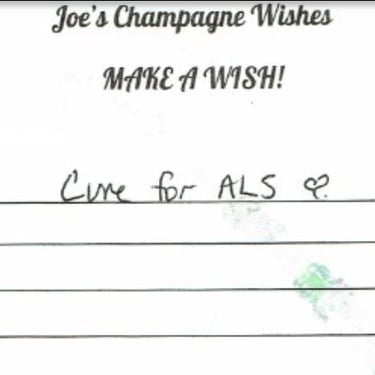 Joe's Champagne Wishes
MAKE A WISH!
Cure for ALS ♡